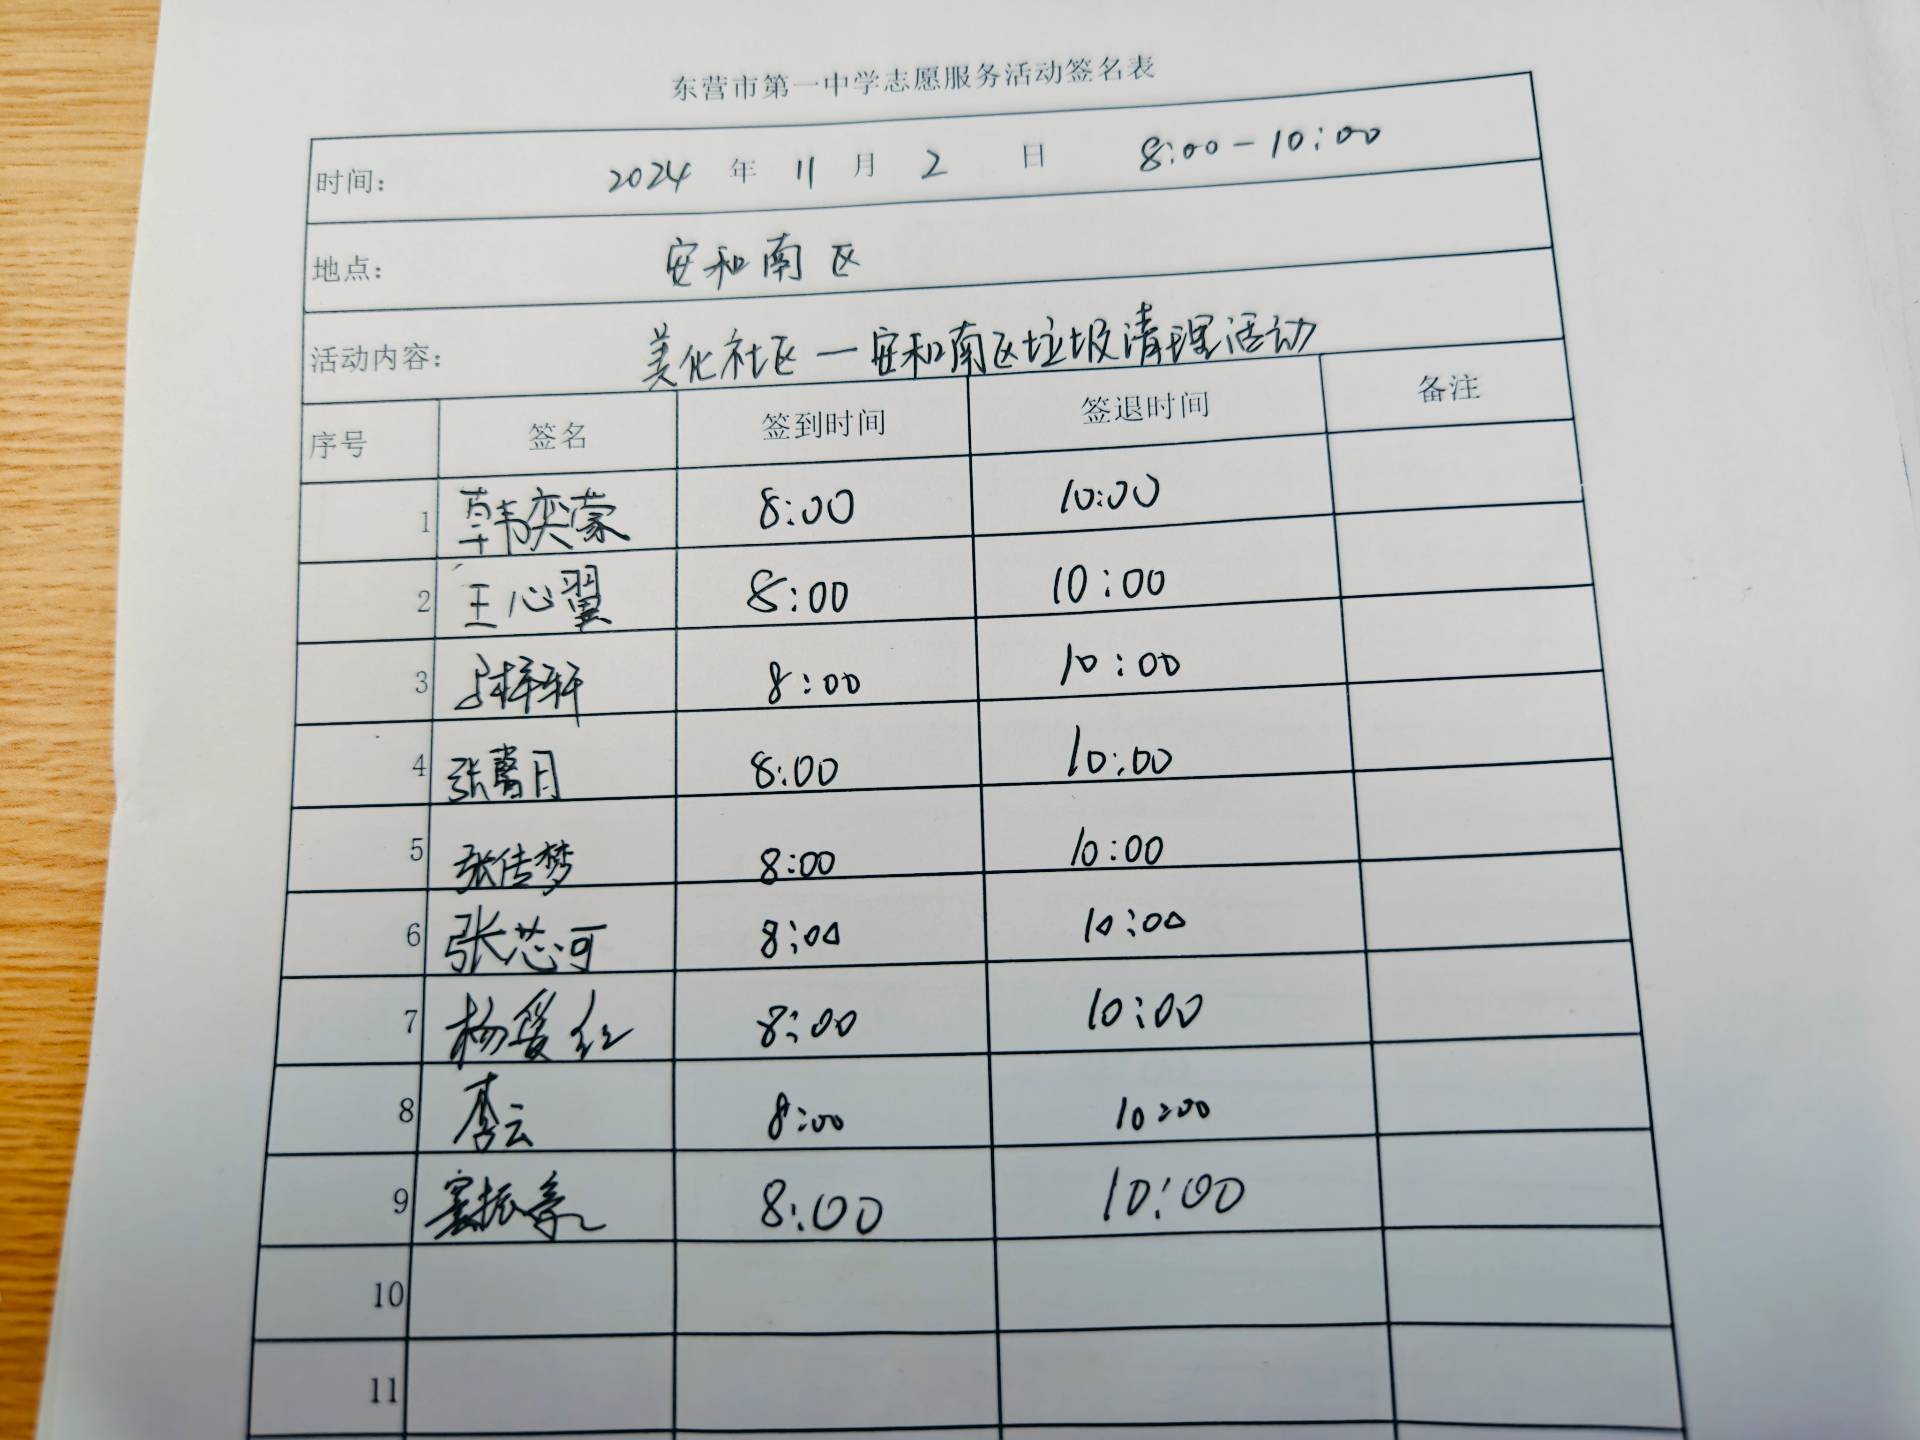 东营市第一中学志愿服务活动签名表
时间： 2024 年 11 月 2 日 8:00-10:00
地点： 安和南区
活动内容： 美化社区一安和南区垃圾清理活动
序号 签名 签到时间 签退时间 备注
1 韩奕蒙 8:00 10:00
2 王心翼 8:00 10:00
3 梓轩 8:00 10:00
4 张馨月 8:00 10:00
5 张佳梦 8:00 10:00
6 张芯可 8:00 10:00
7 杨爱红 8:00 10:00
8 李云 8:00 10:00
9 振 8:00 10:00
10
11